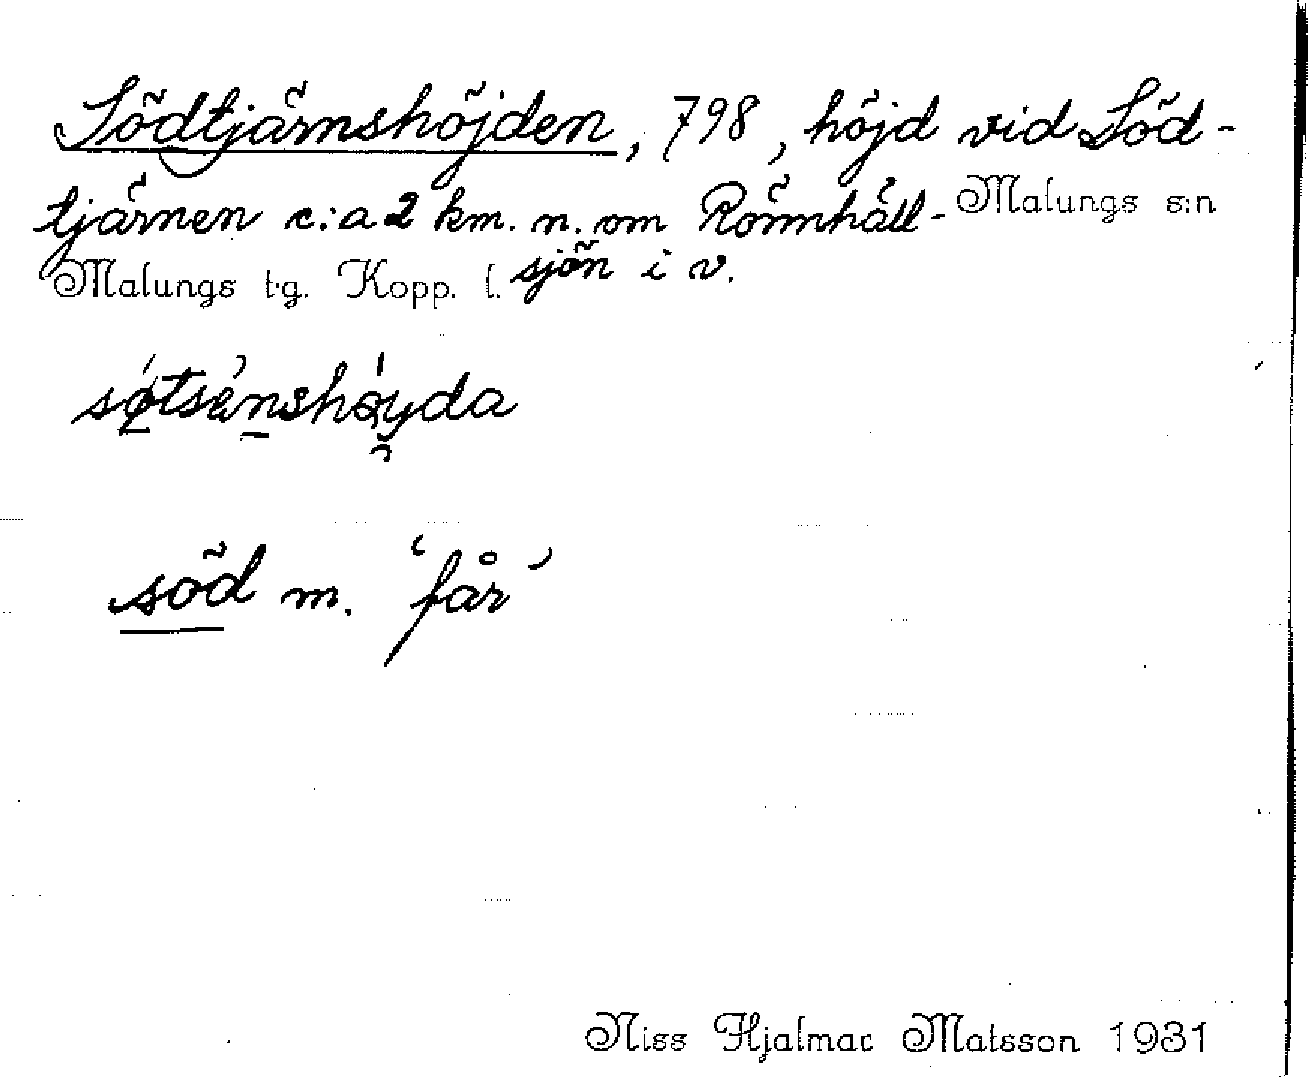 Södtjärnshöjden, 798, höjd vid Söd-
tjärnen c:a 2 km. n. om Römhåll-
Malungs s:n
sjön i v.
Malungs t.g. Kopp. l.
söd m. 'får'
Niss Hjalmar Matsson 1931